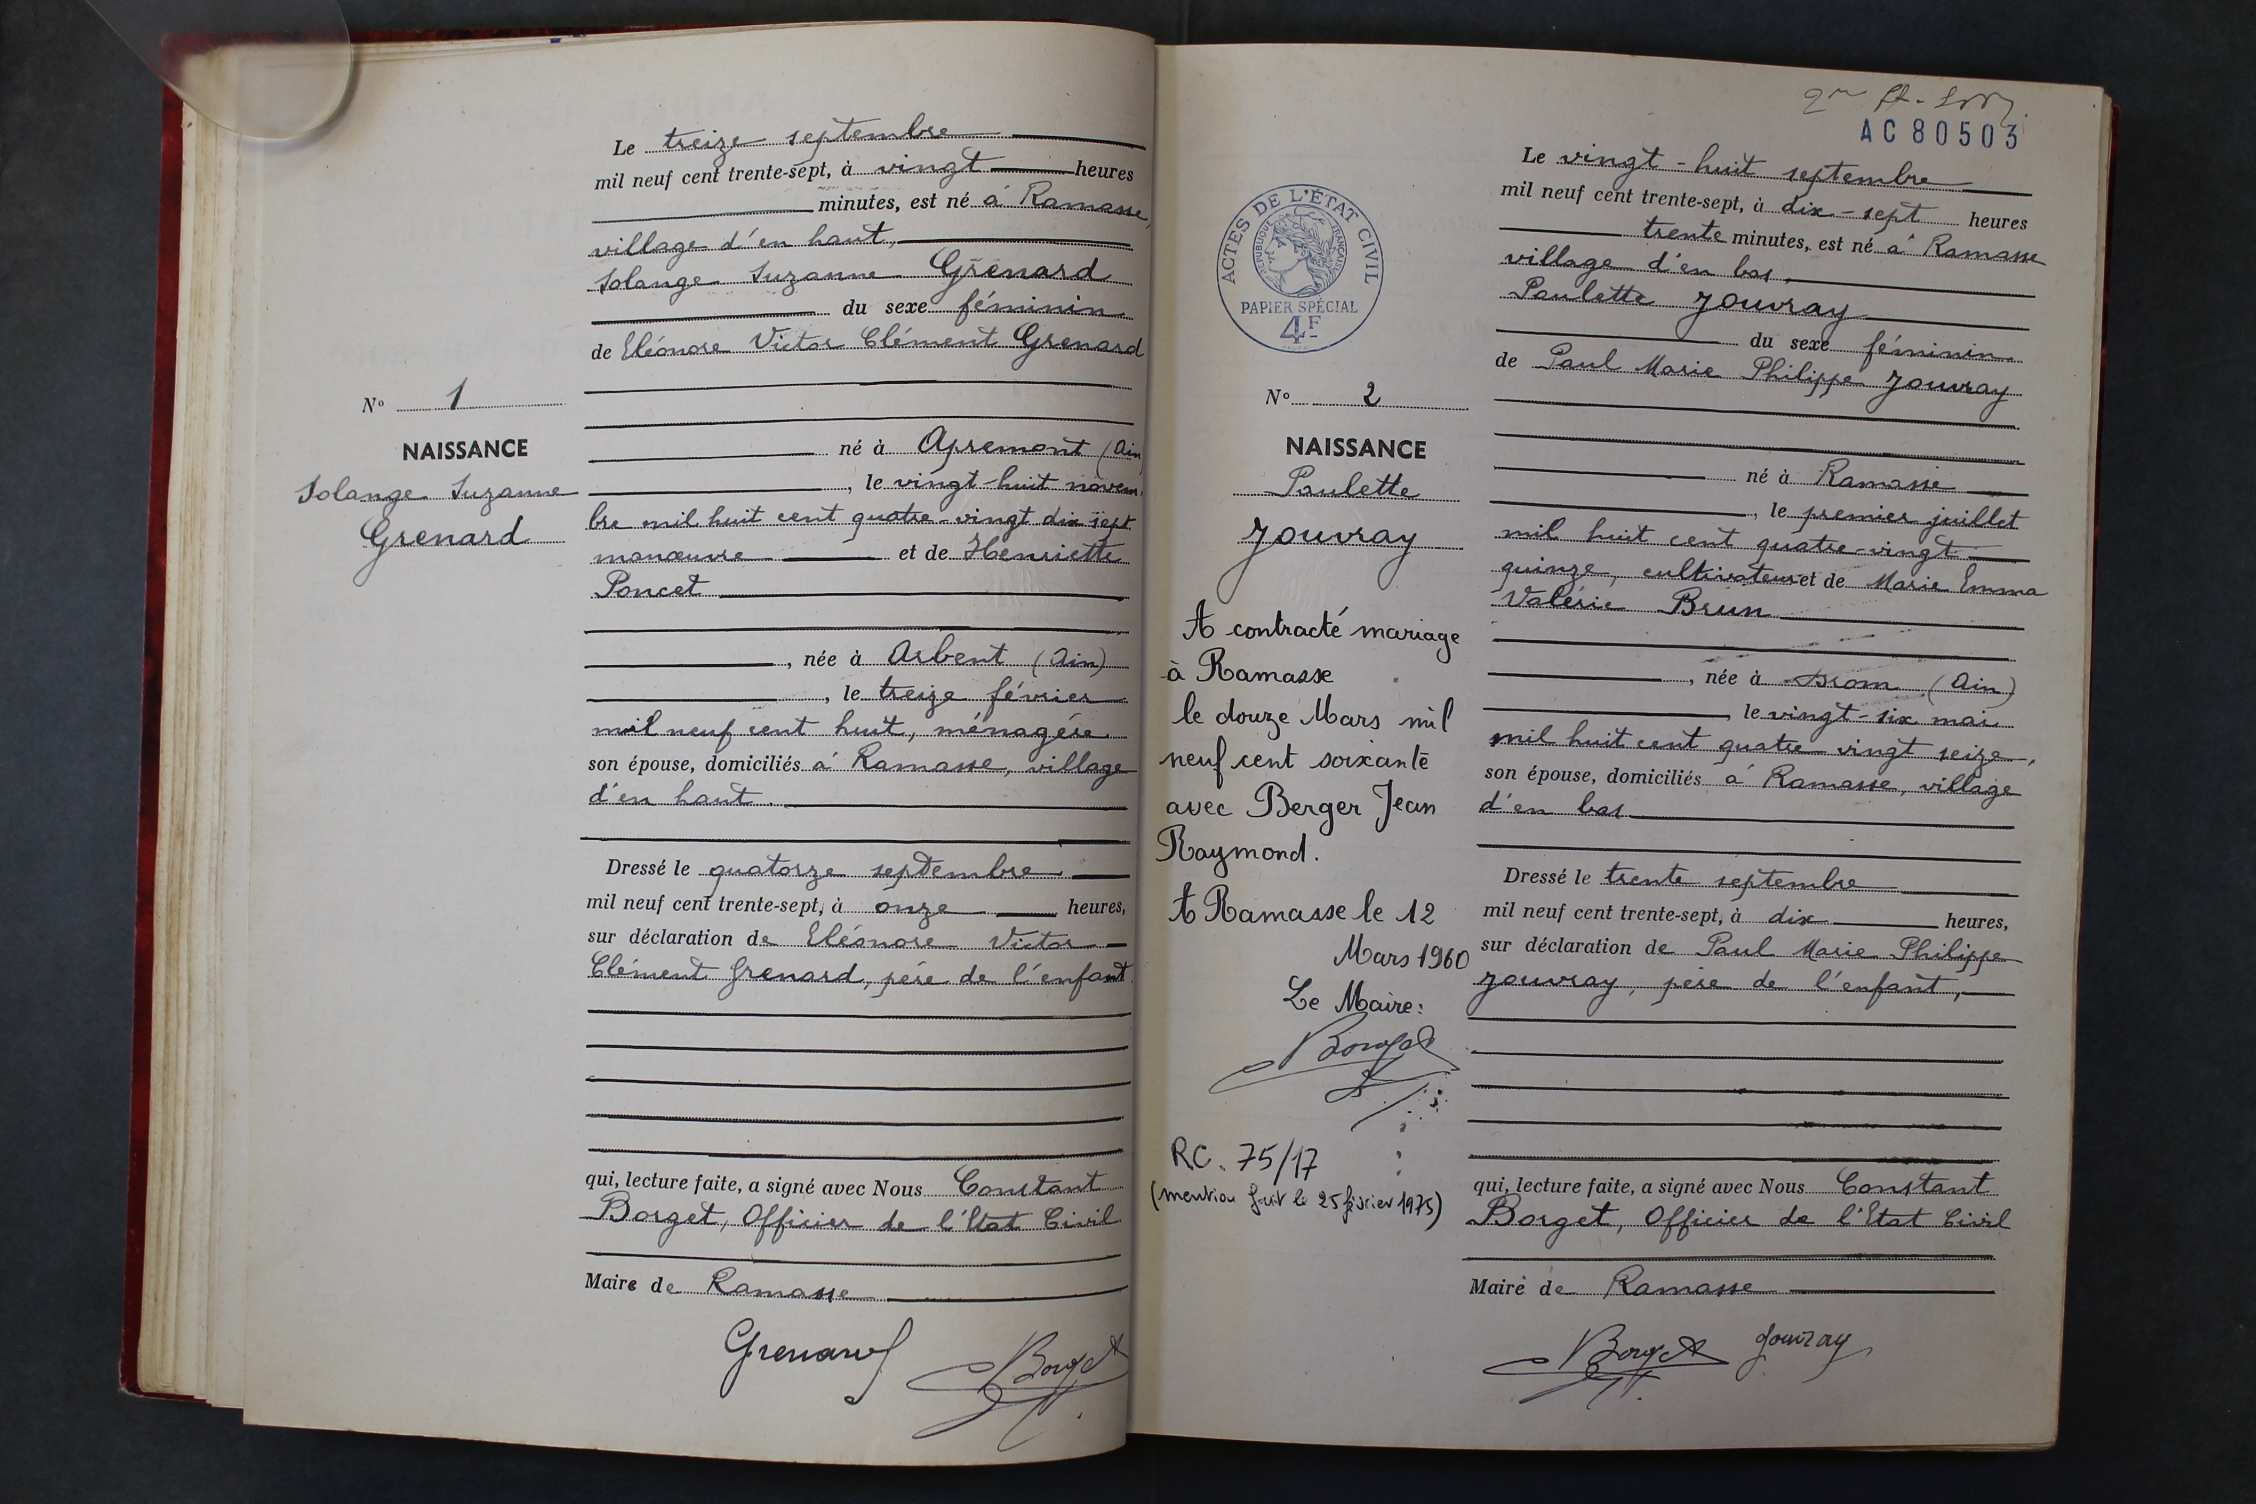 Le treize septembre
mil neuf cent trente-sept, à vingt heures
minutes, est né à Ramasse,
village d'en haut,
Solange Suzanne Grenard
du sexe féminin
de Eléonore Victor Clément Grenard
N° 1
né à Apremont (Ain)
NAISSANCE
, le vingt-huit novem-
Solange Suzanne
bre mil huit cent quatre-vingt dix sept
Grenard
manœuvre et de Henriette
Poncet
, née à Arbent (Ain)
, le treize février
mil neuf cent huit, ménagère
son épouse, domiciliés à Ramasse, village
d'en haut.
Dressé le quatorze septembre
mil neuf cent trente-sept, à onze heures,
sur déclaration de Eléonore Victor
Clément Grenard, père de l'enfant
qui, lecture faite, a signé avec Nous Constant
Borget, Officier de l'Etat Civil
Maire de Ramasse
Grenard
Borget
AC 80503
ACTES DE L'ÉTAT CIVIL
RÉPUBLIQUE FRANÇAISE
PAPIER SPÉCIAL
4F
N° 2
NAISSANCE
Paulette
Jouvray
A contracté mariage
à Ramasse
le douze Mars mil
neuf cent soixante
avec Berger Jean
Raymond.
A Ramasse le 12
Mars 1960
Le Maire :
Borget
RC. 75/17
(mention fait le 25 février 1975)
Le vingt-huit septembre
mil neuf cent trente-sept, à dix-sept heures
trente minutes, est né à Ramasse
village d'en bas,
Paulette Jouvray
du sexe féminin
de Paul Marie Philippe Jouvray
né à Ramasse
, le premier juillet
mil huit cent quatre-vingt
quinze, cultivateur et de Marie Emma
Valérie Brun
, née à Drom (Ain)
, le vingt-six mai
mil huit cent quatre vingt seize,
son épouse, domiciliés à Ramasse, village
d'en bas
Dressé le trente septembre
mil neuf cent trente-sept, à dix heures,
sur déclaration de Paul Marie Philippe
Jouvray, père de l'enfant,
qui, lecture faite, a signé avec Nous Constant
Borget, Officier de l'Etat Civil
Maire de Ramasse
Borget Jouvray